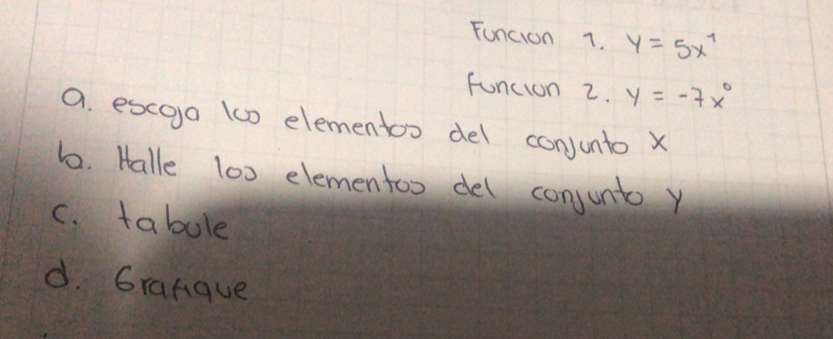 Funcion 1. y = 5x¹
funcion 2. y = -7x⁰
a. escoja los elementos del conjunto x
b. Halle los elementos del conjunto y
c. tabule
d. Grafique